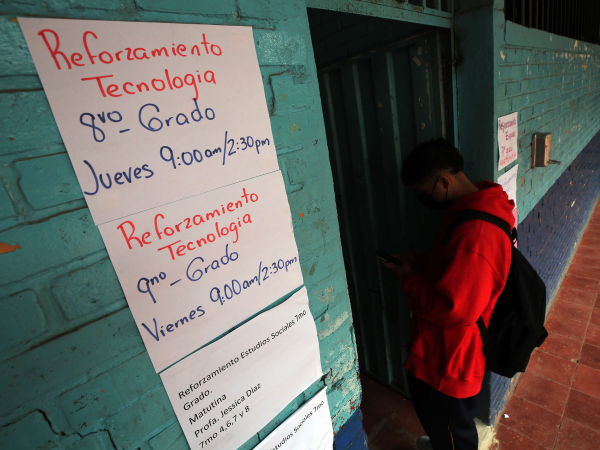 Reforzamiento
Tecnologia
8vo - Grado
Jueves 9:00am/2:30pm
Reforzamiento
Tecnologia
9no - Grado
Viernes 9:00am/2:30pm
Reforzamiento Estudios Sociales 7mo
Grado.
Matutina
Profa. Jessica Diaz
7mo 4,6,7 y 8
Reforzamiento
Español